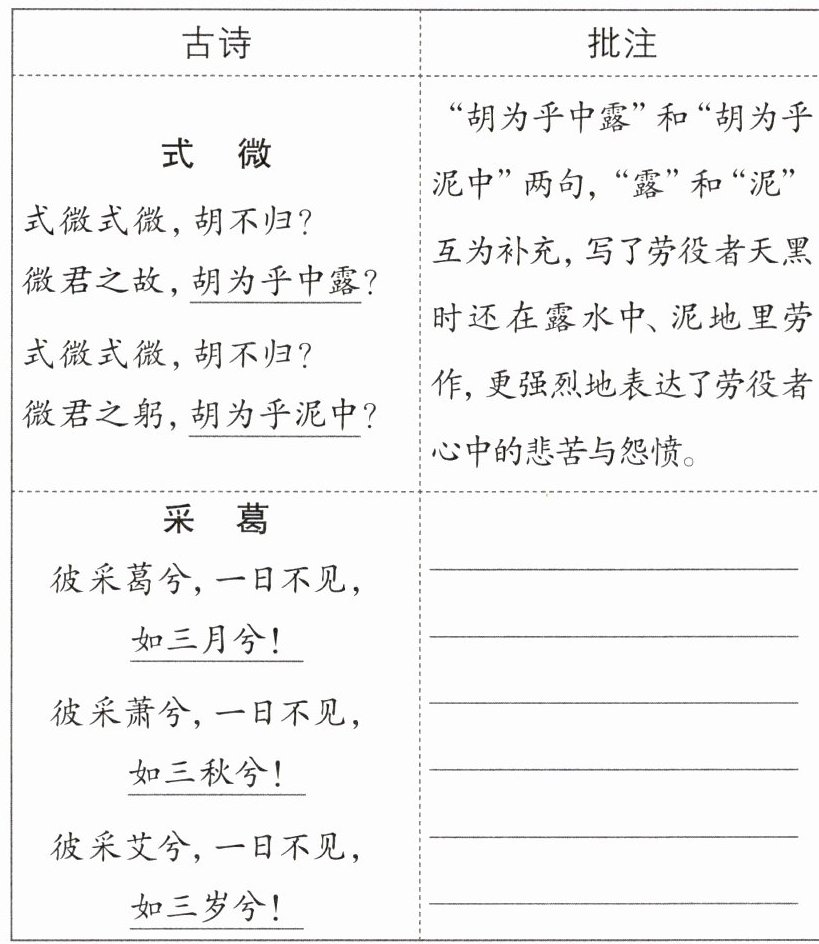 古诗
批注
式 微
式微式微,胡不归?
微君之故,胡为乎中露?
式微式微,胡不归?
微君之躬,胡为乎泥中?
“胡为乎中露”和“胡为乎
泥中”两句,“露”和“泥”
互为补充,写了劳役者天黑
时还在露水中、泥地里劳
作,更强烈地表达了劳役者
心中的悲苦与怨愤。
采 葛
彼采葛兮,一日不见,
如三月兮!
彼采萧兮,一日不见,
如三秋兮!
彼采艾兮,一日不见,
如三岁兮!